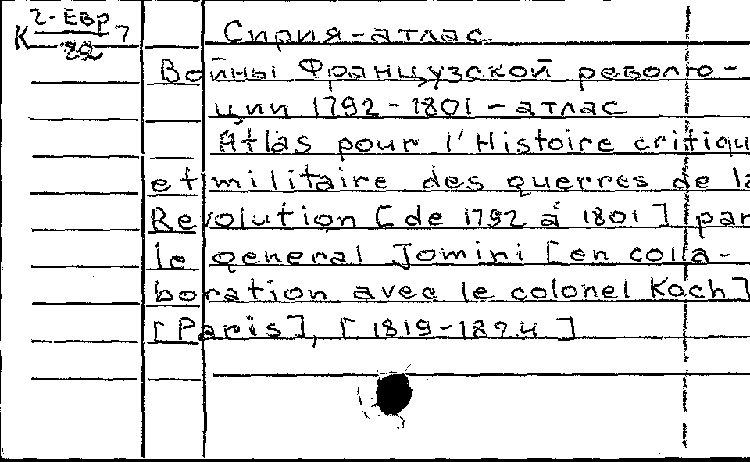 К 2-Евр/82 7
Сирия-атлас
Войны Французской револю-
ции 1792-1801-атлас
Atlas pour l'Histoire critiqu
et militaire des querres de la
Revolution [de 1792 à 1801] par
le general Jomini [en colla-
boration avec le colonel Koch]
[Paris], [1819-1824]